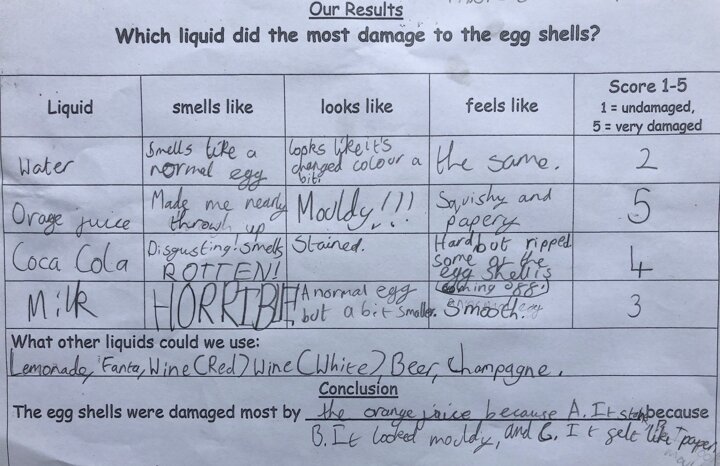 Our Results
Which liquid did the most damage to the egg shells?
Liquid
smells like
looks like
feels like
Score 1-5
1 = undamaged,
5 = very damaged
Water
Smells like a
normal egg
looks like it's
changed colour a
bit.
the same.
2
Orage juice
Made me nearly
throwh up
Mouldy!!!
Squishy and
papery
5
Coca Cola
Disgusting! Smells
ROTTEN!
Stained.
Hard but ripped
some of the
egg shell is
coming off.)
4
Milk
HORRIBLE!
A normal egg
but a bit smaller.
Smooth.
3
What other liquids could we use:
Lemonade, Fanta, Wine (Red) Wine (White) Beer, Champagne.
Conclusion
The egg shells were damaged most by the orange juice because A. It because
B. It looked mouldy, and C. It felt like paper